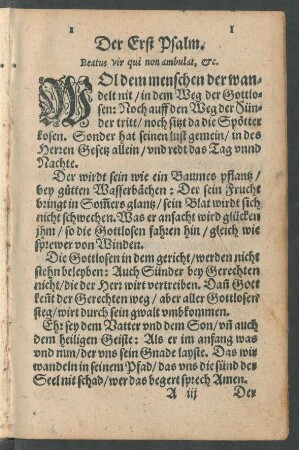 1 1
Der Erst Psalm.
Beatus vir qui non ambulat, &c.
WOl dem menschen der wan-
delt nit / in dem Weg der Gottlo-
sen: Noch auff den Weg der Sün-
der tritt / noch sitzt da die Spötter
kosen. Sonder hat seinen lust gemein / in des
Herren Gesetz allein / vnd redt das Tag vnnd
Nachte.
Der wirdt sein wie ein Baumes pflantz /
bey gůtten Wasserbächen: Der sein Frucht
bringt in Som̃ers glantz / sein Blat wirdt sich
nicht schwechen. Was er anfacht wird glücken
jhm / so die Gottlosen fahren hin / gleich wie
sprewer von Winden.
Die Gottlosen in dem gericht / werden nicht
stehn beleyben: Auch Sünder bey Gerechten
nicht / die der Herr wirt vertreiben. Dañ Gott
keñt der Gerechten weg / aber aller Gottlosen
steg / wirt durch sein gwalt vmbkommen.
Ehr sey dem Vatter vnd dem Son / vñ auch
dem heiligen Geiste: Als er im anfang was
vnd nun / der vns sein Gnade layste. Das wir
wandeln in seinem Pfad / das vns die sünd der
Seel nit schad / wer das begert sprech Amen.
A iij Der